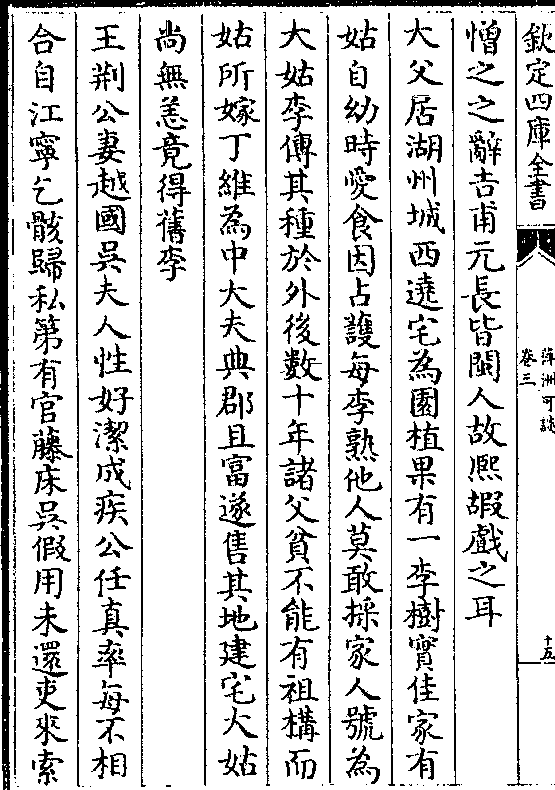 欽定四庫全書
萍洲可談
卷三
十五
憎之之辭吉甫元長皆閩人故熈嘏戲之耳
大父居湖州城西遶宅為園植果有一李樹實佳家有
姑自幼時愛食因占護每李熟他人莫敢採家人號為
大姑李傳其種於外後數十年諸父貧不能有祖構而
姑所嫁丁維為中大夫典郡且富遂售其地建宅大姑
尚無恙竟得舊李
王荆公妻越國吳夫人性好潔成疾公任真率每不相
合自江寧乞骸歸私第有官藤床吳假用未還吏來索